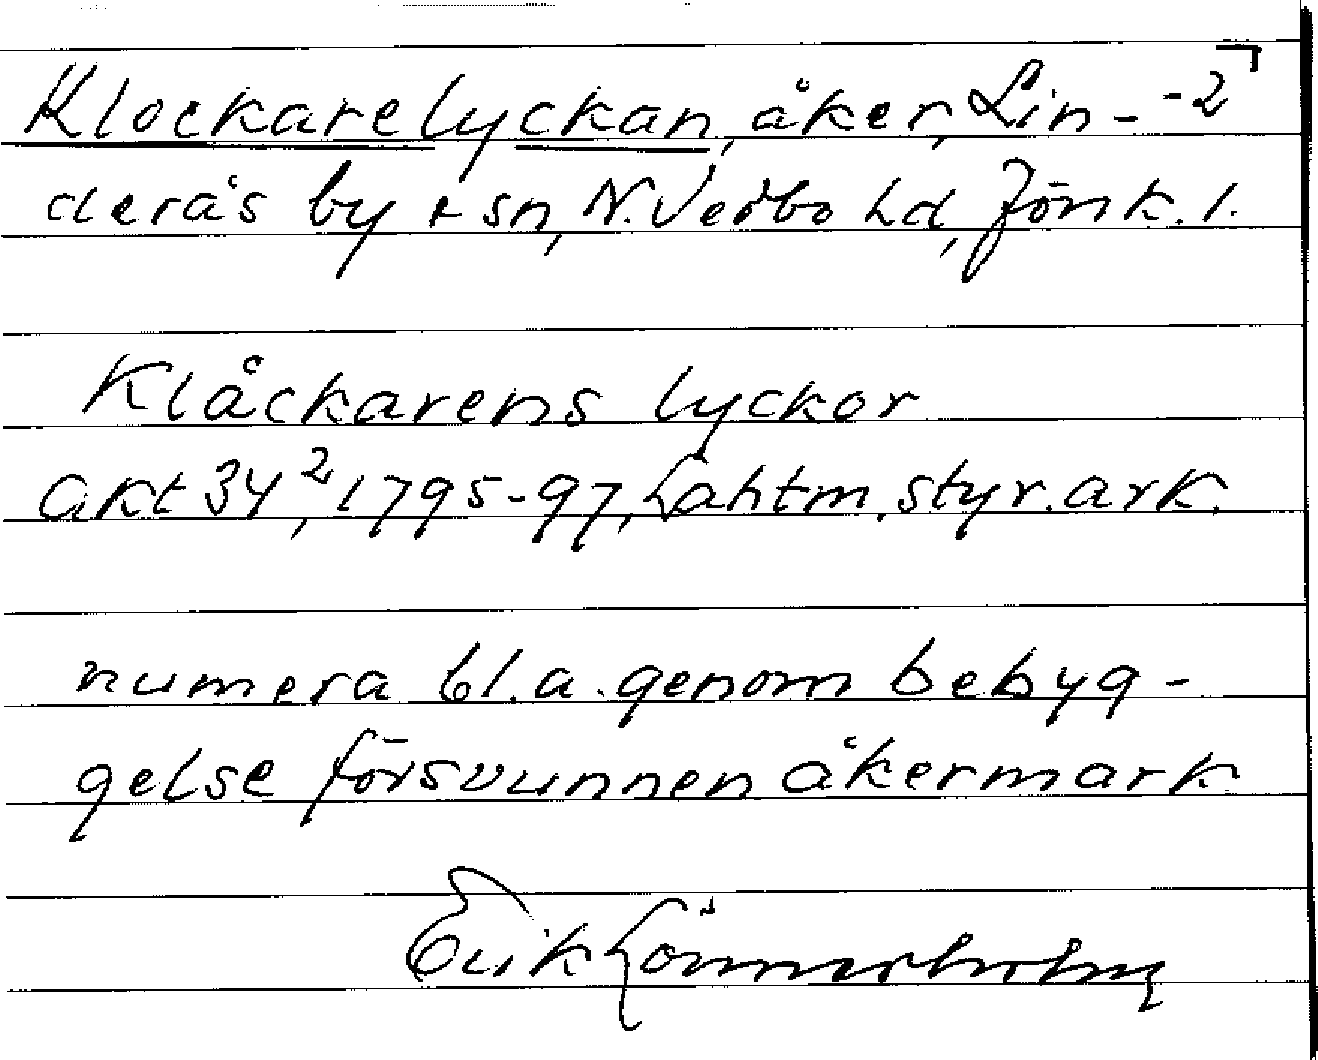 Klockarelyckan, åker, Lin- -2
derås by + sn, N. Vedbo hd, Jönk. l.
Klåckarens lyckor
akt 34², 1795-97, Lantm.styr.ark.
numera bl.a. genom bebyg-
gelse försvunnen åkermark
Erik Lönnerholm